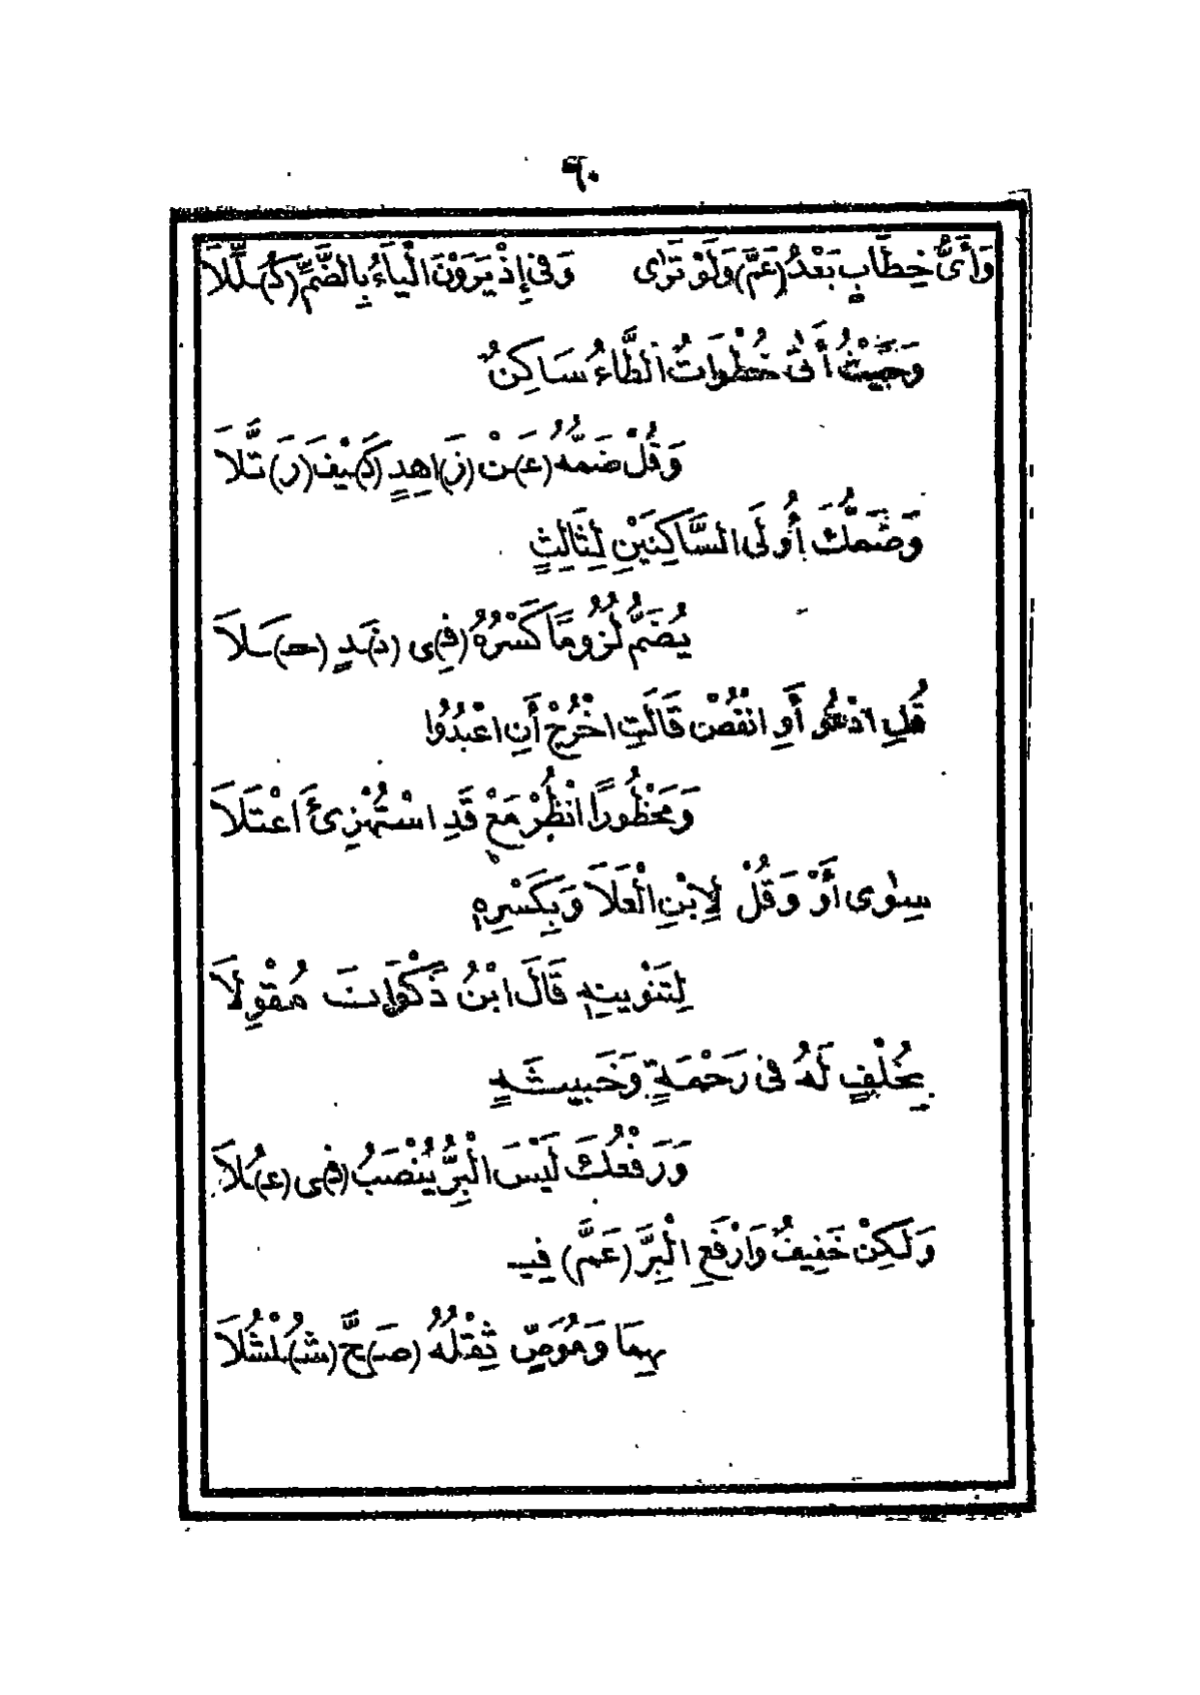 ٦٠
وَأَىُّ خِطَابٍ بَعْدُ (عَمَّ) وَلَوْ تَرٰى وَفِى إِذْ يَرَوْنَ الْيَاءُ بِالضَّمِّ (كُـ)ـلِّلَا
وَحَيْثُ أَتٰى خُطُوَاتٌ الطَّاءُ سَاكِنٌ
وَقُلْ ضَمُّهُ (عَـ)ـنْ (زَ)اهِدٍ (كَـ)ـيْفَ (رَ)تَّلَا
وَضَمُّكَ أُولَى السَّاكِنَيْنِ لِثَالِثٍ
يُضَمُّ لُزُومًا كَسْرُهُ (فِـ)ـى (نَـ)ـدٍ (حَـ)ـلَا
قُلِ ادْعُوا أَوِ انْقُصْ قَالَتِ اخْرُجْ أَنِ اعْبُدُوا
وَمَحْظُورًا انْظُرْ مَعْ قَدِ اسْتُهْزِئَ اعْتَلَا
سِوٰى أَوْ وَقُلْ لِابْنِ الْعَلَا وَبِكَسْرِهِ
لِتَنْوِينِهِ قَالَ ابْنُ ذَكْوَانَ مُقْوِلَا
بِخُلْفٍ لَهُ فِى رَحْمَةٍ وَخَبِيثَةٍ
وَرَفْعُكَ لَيْسَ الْبِرُّ يُنْصَبُ (فِـ)ـى (عُـ)ـلَا
وَلَكِنْ خَفِيفٌ وَارْفَعِ الْبِرَّ (عَمَّ) فِيـ
ـهِمَا وَمُوَصٍّ ثِقْلُهُ (صَـ)ـحَّ (شُـ)ـلْشُلَا